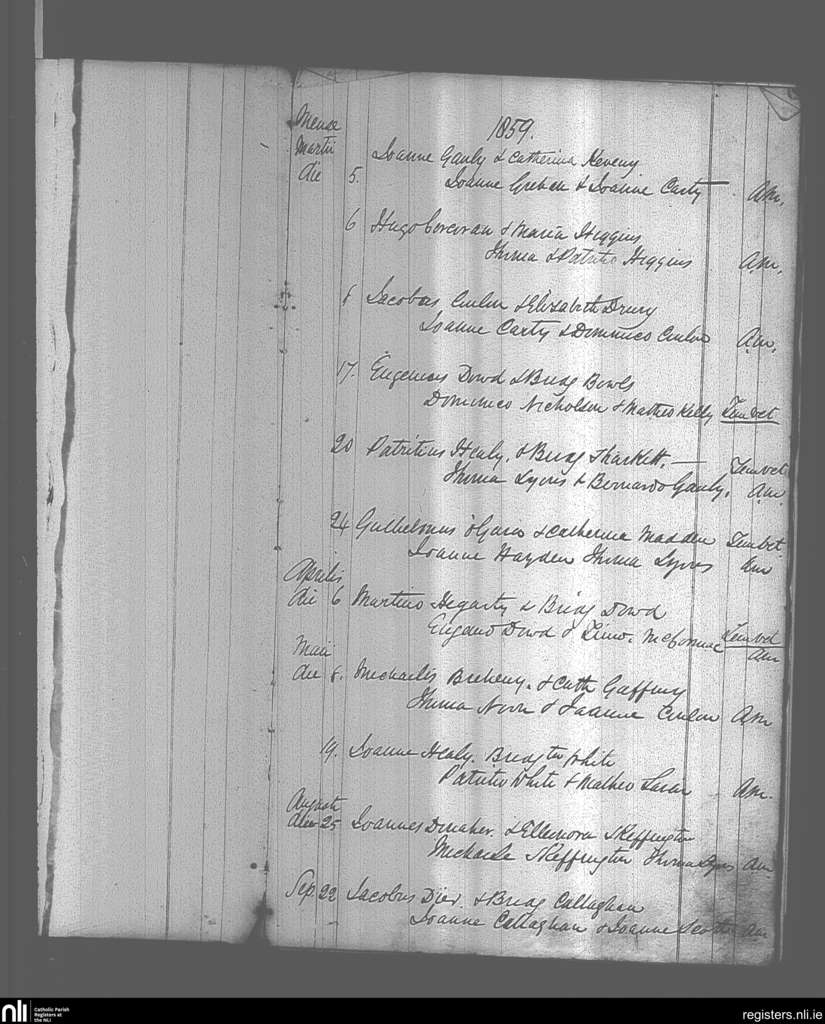 1859.
Mense
Martii
die 5. Joanne Ganly & Catherina Keveny
Joanne & Joanne Carty — Am.
6 Hugo Corcoran & Maria Higgins
Thoma & Patritio Higgins Am.
8 Jacobus Conlon & Elizabeth Drury
Joanne Carty & Dominico Conlon Am.
17. Eugenius Dowd & Bridg Bowls
Dominico Nicholson & Matheo Kelly
20 Patritius Healy. & Bridg —
Thoma Lyons & Bernardo Ganly. Am
24 Gulhelmus & Catherina Madden
Joanne Hayden Thoma Lyons Am
Aprilis
die 6 Martino Hegarty & Bridg Dowd
Dowd & McCormac Am
Maii
die 8. Michaelis Breheny. & Cath Gaffney
Thoma Noon & Joanne Conlon Am
19. Joanne Healy. Bridg White
Patritio White & Matheo Am.
Augusti
die 25 Joannes & Ellenora Skeffington
Michaele Skeffington Thoma Lyons Am
Sep 22 Jacobus & Bridg Callaghan
Joanne Callaghan & Joanne Am
nli
Catholic Parish
Registers at
the NLI
registers.nli.ie